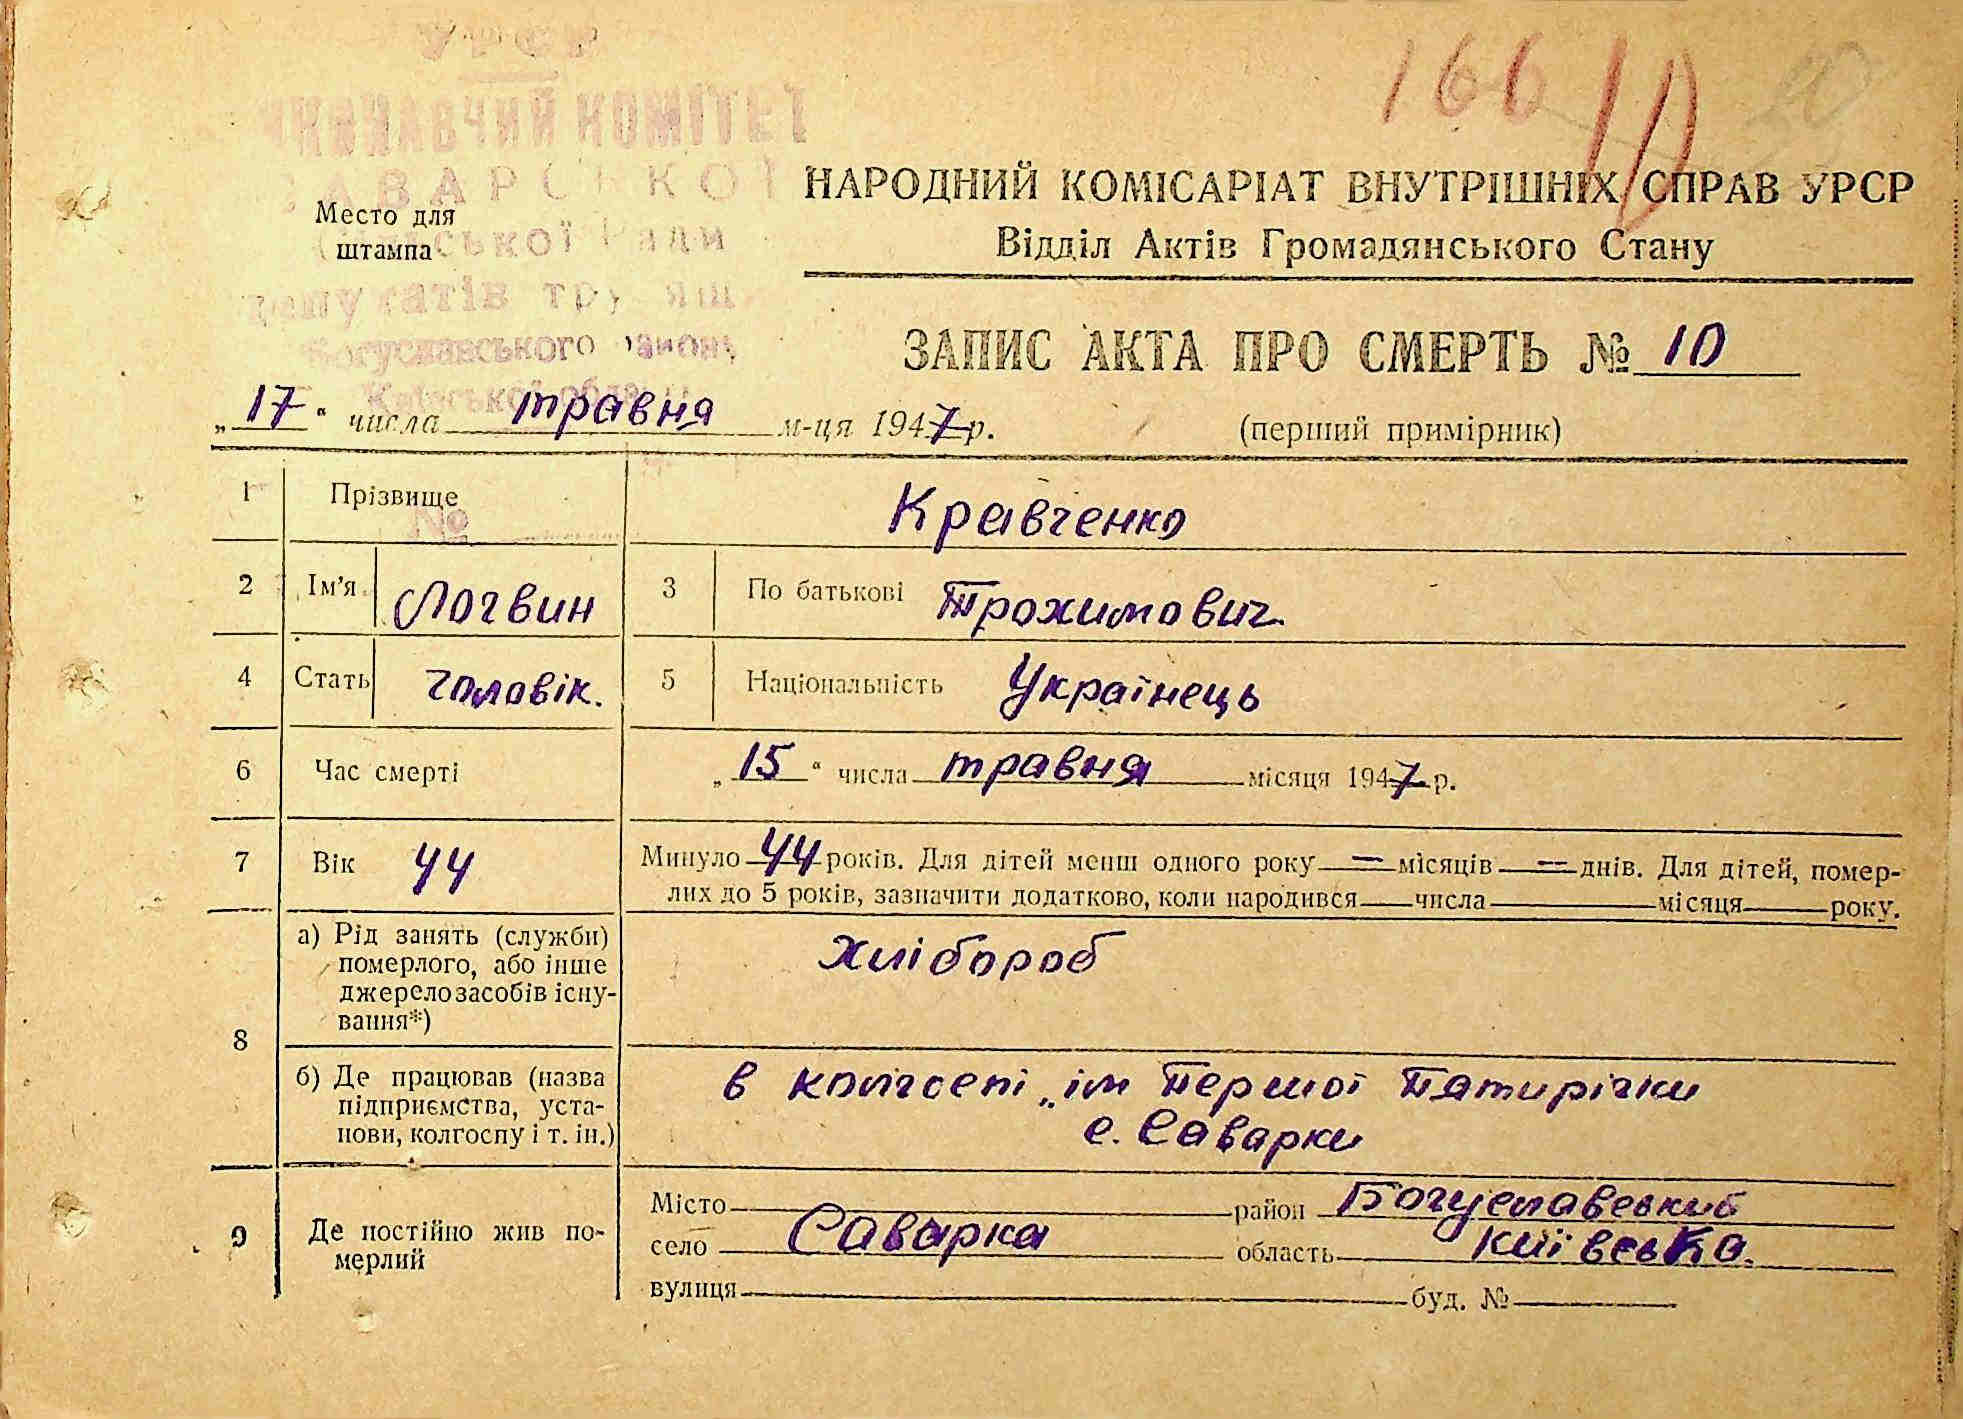 УРСР
ВИКОНАВЧИЙ КОМІТЕТ
САВАРСЬКОЇ
166 10
20
НАРОДНИЙ КОМІСАРІАТ ВНУТРІШНІХ СПРАВ УРСР
Место для
штампа
сільської Ради
Відділ Актів Громадянського Стану
депутатів трудящ
Богуславського району
Київської області
ЗАПИС АКТА ПРО СМЕРТЬ № 10
„17“ числа травня м-ця 1947 р.
(перший примірник)
1 Прізвище Кравченко
№
2 Ім’я Логвин 3 По батькові Трохимович
4 Стать чоловік. 5 Національність Українець
6 Час смерті „15“ числа травня місяця 1947 р.
7 Вік 44 Минуло 44 років. Для дітей менш одного року = місяців = днів. Для дітей, помер-
лих до 5 років, зазначити додатково, коли народився числа місяця року.
8 а) Рід занять (служби)
померлого, або інше
джерело засобів існу-
вання*)
хлібороб
б) Де працював (назва
підприємства, уста-
нови, колгоспу і т. ін.)
в колгоспі „ім Першої Пятирічки
с. Саварки
9 Де постійно жив по-
мерлий
Місто район Богуславський
село Саварка область Київська.
вулиця буд. №